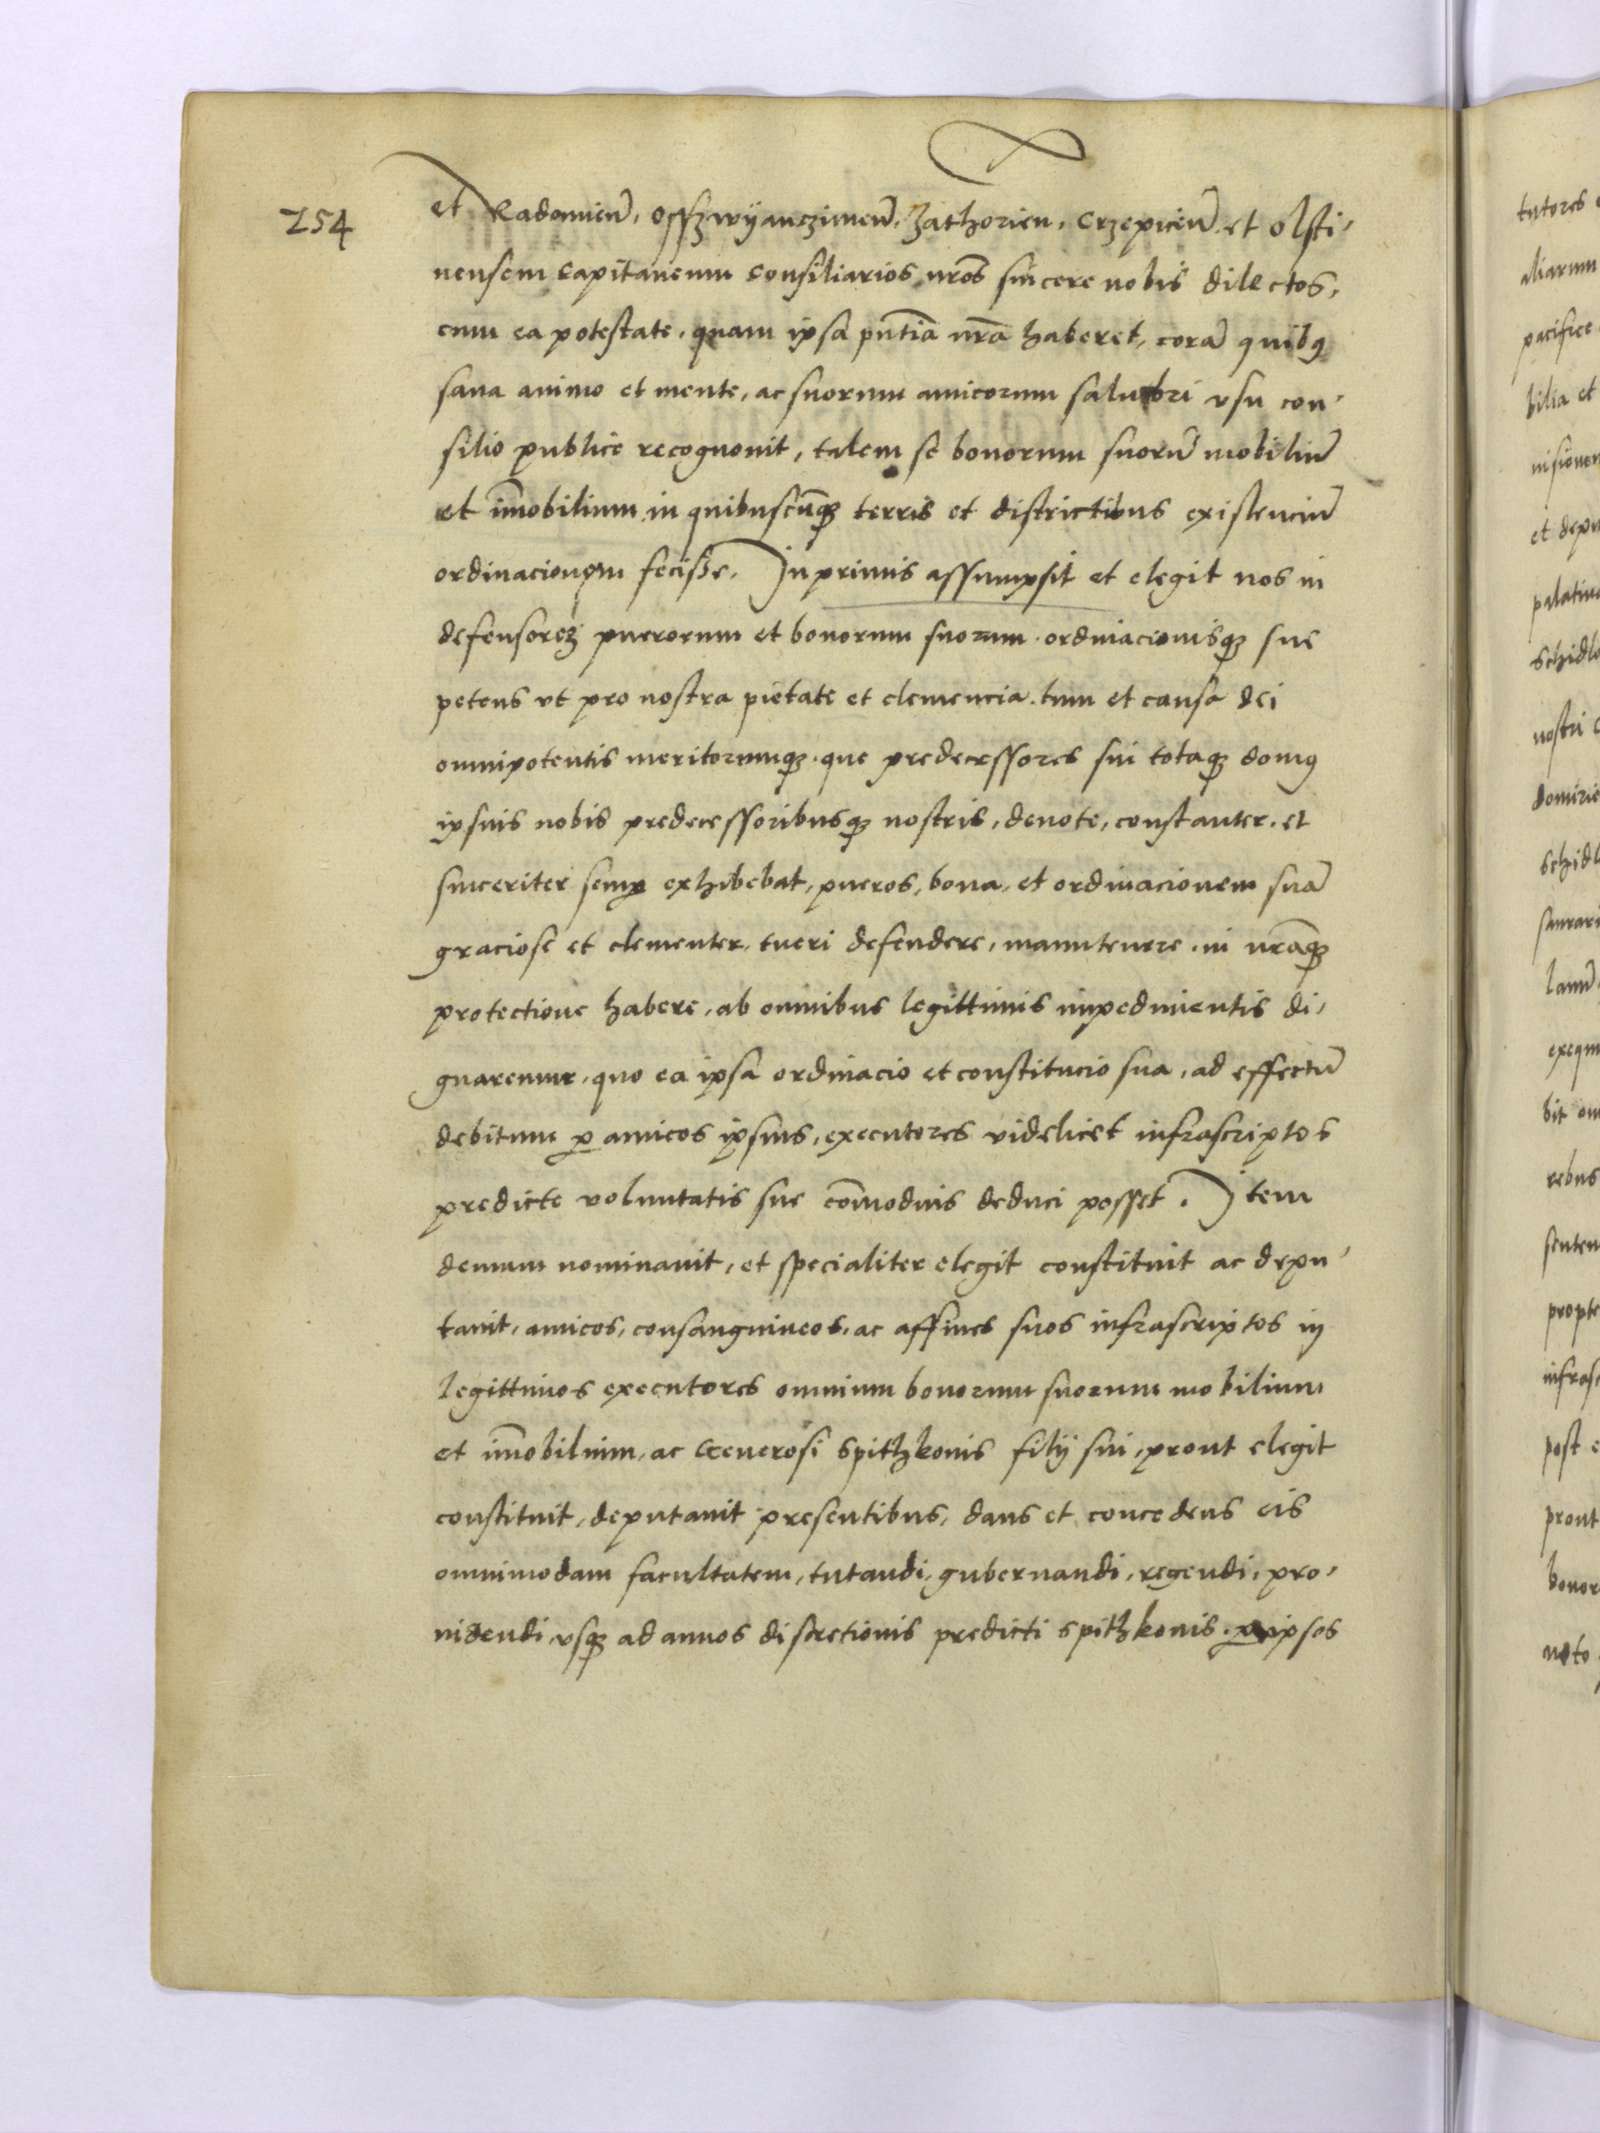 254
et Radomien̄, Osszwÿanczimen̄, Zathorien, Crzepicien̄ et olsti,
nensem Capitaneum Consiliarios nr̄os sincere nobis dilectos,
cum ea potestate, quam ipsa pn̄tia nr̄a haberet, corā quibꝰ
sana animo et mente, ac suorum amicorum salubri vsu con,
silio publice recognouit, talem se bonorum suorū mobiliū
et im̄obilium in quibuscūqꝫ terris et districtibus existenciū
ordinacionem fecisse. In primis assumpsit et elegit nos in
defensoreꝫ puerorum et bonorum suorum ordinacionisqꝫ sue
petens vt pro nostra pietate et clemencia tum et causa dei
omnipotentis meritorumqꝫ que predecessores sui totaqꝫ domꝰ
ipsius nobis predecessoribusqꝫ nostris, deuote, constanter, et
sinceriter semꝑ exhibebat, pueros, bona, et ordinacionem suā
graciose et clementer tueri defendere, manutenere in nr̄aqꝫ
protectione habere, ab omnibus legittimis impedimentis di,
gnaremur, quo ea ipsa ordinacio et constitucio sua, ad effectū
debitum ꝑ amicos ipsius, executores videlicet infrascriptos
predicte voluntatis sue com̄odius deduci posset. Item
demum nominauit, et specialiter elegit constituit ac depu,
tauit, amicos, consanguineos, ac affines suos infrascriptos in
legittimos executores omnium bonorum suorum mobilium
et im̄obilium, ac Generosi Spithkonis filÿ sui, prout elegit
constituit, deputauit presentibus, dans et concedens eis
omnimodam facultatem, tutandi, gubernandi, regendi, pro,
uidendi vsqꝫ ad annos discretionis predicti Spithkonis. ꝑ ipsos
tutores
aliarum
pacifice
bilia et
uisionem
et depu
palatin
schidlo
nostri
domirie
schidl
exequ
bit om
rebus
senten
propte
infrasc
post
prout
bonor